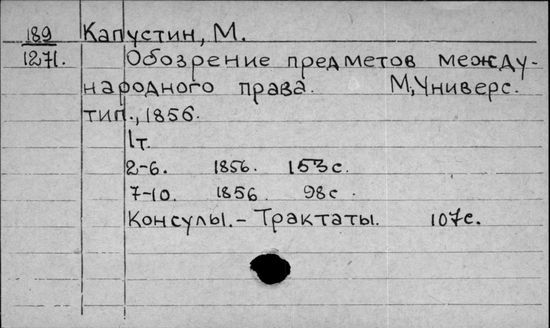 189 Капустин, М.
1271. Обозрение предметов между-
народного права. М, Универс.
тип., 1856.
1т.
2-6. 1856. 153с.
7-10. 1856. 98с.
Консулы. - Трактаты. 107с.